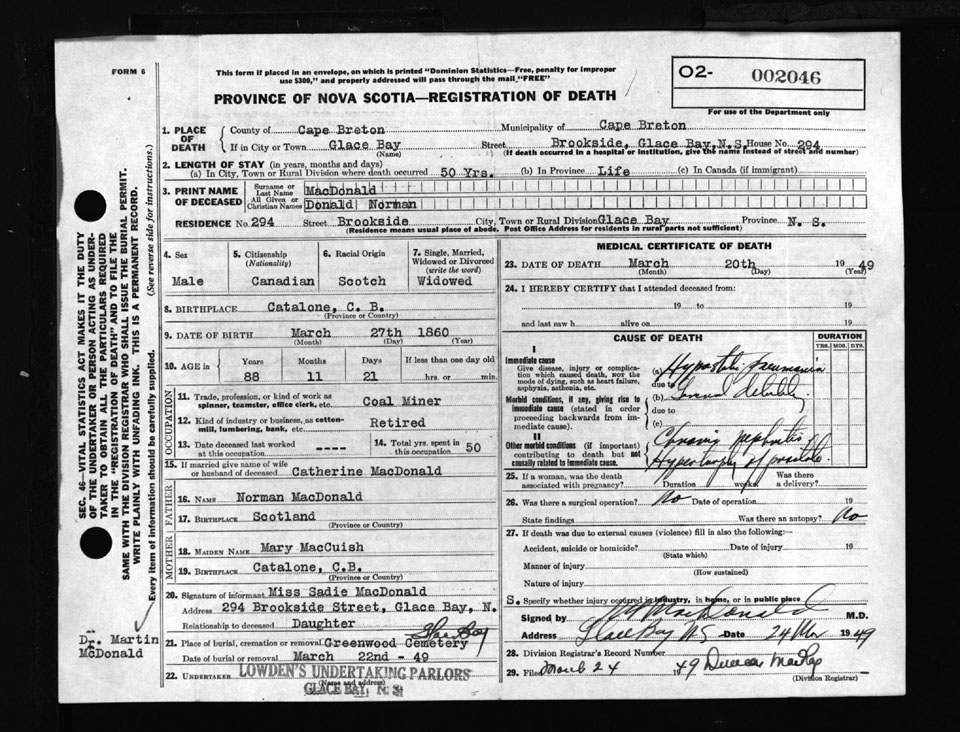 FORM 6
This form if placed in an envelope, on which is printed "Dominion Statistics—Free, penalty for improper
use $300," and properly addressed will pass through the mail "FREE"
O2- 002046
For use of the Department only
PROVINCE OF NOVA SCOTIA—REGISTRATION OF DEATH
1. PLACE OF DEATH
County of Cape Breton Municipality of Cape Breton
If in City or Town Glace Bay Street Brookside, Glace Bay, N.S. House No. 294
(Name) (If death occurred in a hospital or institution, give the name instead of street and number)
2. LENGTH OF STAY (in years, months and days)
(a) In City, Town or Rural Division where death occurred 50 Yrs. (b) In Province Life (c) In Canada (if immigrant)
3. PRINT NAME OF DECEASED
Surname or Last Name MacDonald
All Given or Christian Names Donald Norman
RESIDENCE No. 294 Street Brookside City, Town or Rural Division Glace Bay Province N. S.
(Residence means usual place of abode. Post Office Address for residents in rural parts not sufficient)
4. Sex
Male
5. Citizenship
(Nationality)
Canadian
6. Racial Origin
Scotch
7. Single, Married,
Widowed or Divorced
(write the word)
Widowed
8. BIRTHPLACE Catalone, C. B.
(Province or Country)
9. DATE OF BIRTH March 27th 1860
(Month) (Day) (Year)
10. AGE in
Years Months Days If less than one day old
88 11 21 hrs. or min.
OCCUPATION
11. Trade, profession, or kind of work as
spinner, teamster, office clerk, etc. Coal Miner
12. Kind of industry or business, as cotton-
mill, lumbering, bank, etc. Retired
13. Date deceased last worked
at this occupation ----
14. Total yrs. spent in
this occupation 50
15. If married give name of wife
or husband of deceased Catherine MacDonald
FATHER
16. NAME Norman MacDonald
17. BIRTHPLACE Scotland
(Province or Country)
MOTHER
18. MAIDEN NAME Mary MacCuish
19. BIRTHPLACE Catalone, C.B.
(Province or Country)
20. Signature of informant Miss Sadie MacDonald
Address 294 Brookside Street, Glace Bay, N. S.
Relationship to deceased Daughter
Glace Bay
21. Place of burial, cremation or removal Greenwood Cemetery
Date of burial or removal March 22nd - 49
22. UNDERTAKER LOWDEN'S UNDERTAKING PARLORS
(Name and address)
GLACE BAY, N. S.
MEDICAL CERTIFICATE OF DEATH
23. DATE OF DEATH March 20th 1949
(Month) (Day) (Year)
24. I HEREBY CERTIFY that I attended deceased from:
19 to 19
and last saw h alive on 19
CAUSE OF DEATH
DURATION
YRS. MOS. DYS.
I
Immediate cause
Give disease, injury or complica-
tion which caused death, NOT the
mode of dying, such as heart failure,
asphyxia, asthenia, etc.
(a) Hypostatic pneumonia
due to
Morbid conditions, if any, giving rise to
immediate cause (stated in order
proceeding backwards from im-
mediate cause).
(b) General debility
due to
(c)
II
Other morbid conditions (if important)
contributing to death but not
causally related to immediate cause.
Chronic nephritis
Hypertrophy of prostate
25. If a woman, was the death
associated with pregnancy? Duration weeks Was there
a delivery?
26. Was there a surgical operation? No Date of operation 19
State findings Was there an autopsy? No
27. If death was due to external causes (violence) fill in also the following:—
Accident, suicide or homicide? Date of injury 19
(State which)
Manner of injury
(How sustained)
Nature of injury
Specify whether injury occurred in industry, in home, or in public place
Signed by MacDonald M.D.
Address Glace Bay N S Date 24 Mar 1949
28. Division Registrar's Record Number
29. Filed March 24 1949 Duncan
(Division Registrar)
SEC. 46—VITAL STATISTICS ACT MAKES IT THE DUTY
OF THE UNDERTAKER OR PERSON ACTING AS UNDER-
TAKER TO OBTAIN ALL THE PARTICULARS REQUIRED
IN THE "REGISTRATION OF DEATH" AND TO FILE THE
SAME WITH THE DIVISION REGISTRAR WHO SHALL ISSUE THE BURIAL PERMIT.
WRITE PLAINLY WITH UNFADING INK. THIS IS A PERMANENT RECORD.
Every item of information should be carefully supplied. (See reverse side for instructions.)
Dr. Martin
McDonald